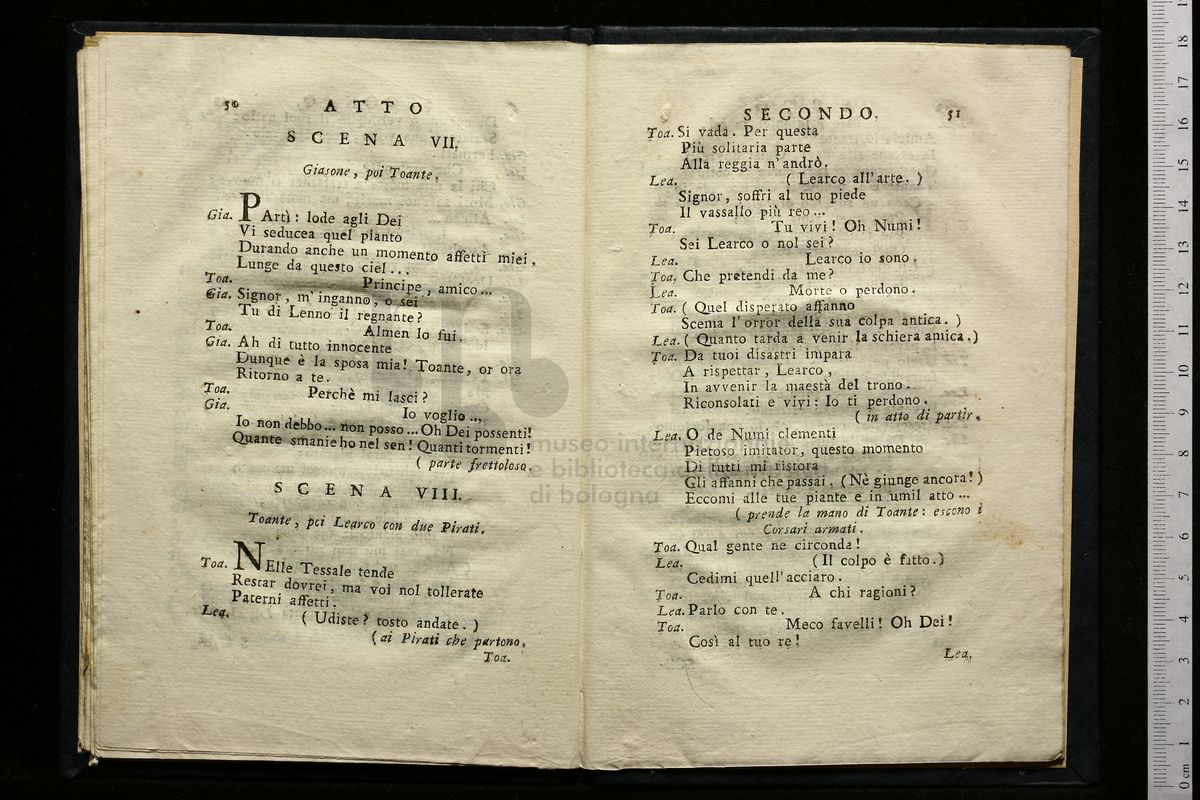 50 ATTO
SCENA VII.
Giasone, poi Toante.
Gia. PArtì: lode agli Dei
Vi seducea quel pianto
Durando anche un momento affetti miei.
Lunge da questo ciel...
Toa. Principe, amico...
Gia. Signor, m'inganno, o sei
Tu di Lenno il regnante?
Toa. Almen lo fui.
Gia. Ah di tutto innocente
Dunque è la sposa mia! Toante, or ora
Ritorno a te.
Toa. Perchè mi lasci?
Gia. Io voglio...
Io non debbo... non posso... Oh Dei possenti!
Quante smanie ho nel sen! Quanti tormenti!
( parte frettoloso.
SCENA VIII.
Toante, poi Learco con due Pirati.
Toa. NElle Tessale tende
Restar dovrei, ma voi nol tollerate
Paterni affetti.
Lea. ( Udiste? tosto andate. )
(ai Pirati che partono.
Toa.
SECONDO. 51
Toa. Si vada. Per questa
Più solitaria parte
Alla reggia n'andrò.
Lea. ( Learco all'arte. )
Signor, soffri al tuo piede
Il vassallo più reo...
Toa. Tu vivi! Oh Numi!
Sei Learco o nol sei?
Lea. Learco io sono.
Toa. Che pretendi da me?
Lea. Morte o perdono.
Toa. ( Quel disperato affanno
Scema l'orror della sua colpa antica. )
Lea. ( Quanto tarda a venir la schiera amica.)
Toa. Da tuoi disastri impara
A rispettar, Learco,
In avvenir la maestà del trono.
Riconsolati e vivi: Io ti perdono.
( in atto di partir.
Lea. O de Numi clementi
Pietoso imitator, questo momento
Di tutti mi ristora
Gli affanni che passai. (Nè giunge ancora!)
Eccomi alle tue piante e in umil atto...
( prende la mano di Toante: escono i
Corsari armati.
Toa. Qual gente ne circonda!
Lea. (Il colpo è fatto.)
Cedimi quell'acciaro.
Toa. A chi ragioni?
Lea. Parlo con te.
Toa. Meco favelli! Oh Dei!
Così al tuo re!
Lea.
museo internazionale
e biblioteca
di bologna
0 cm 1 2 3 4 5 6 7 8 9 10 11 12 13 14 15 16 17 18